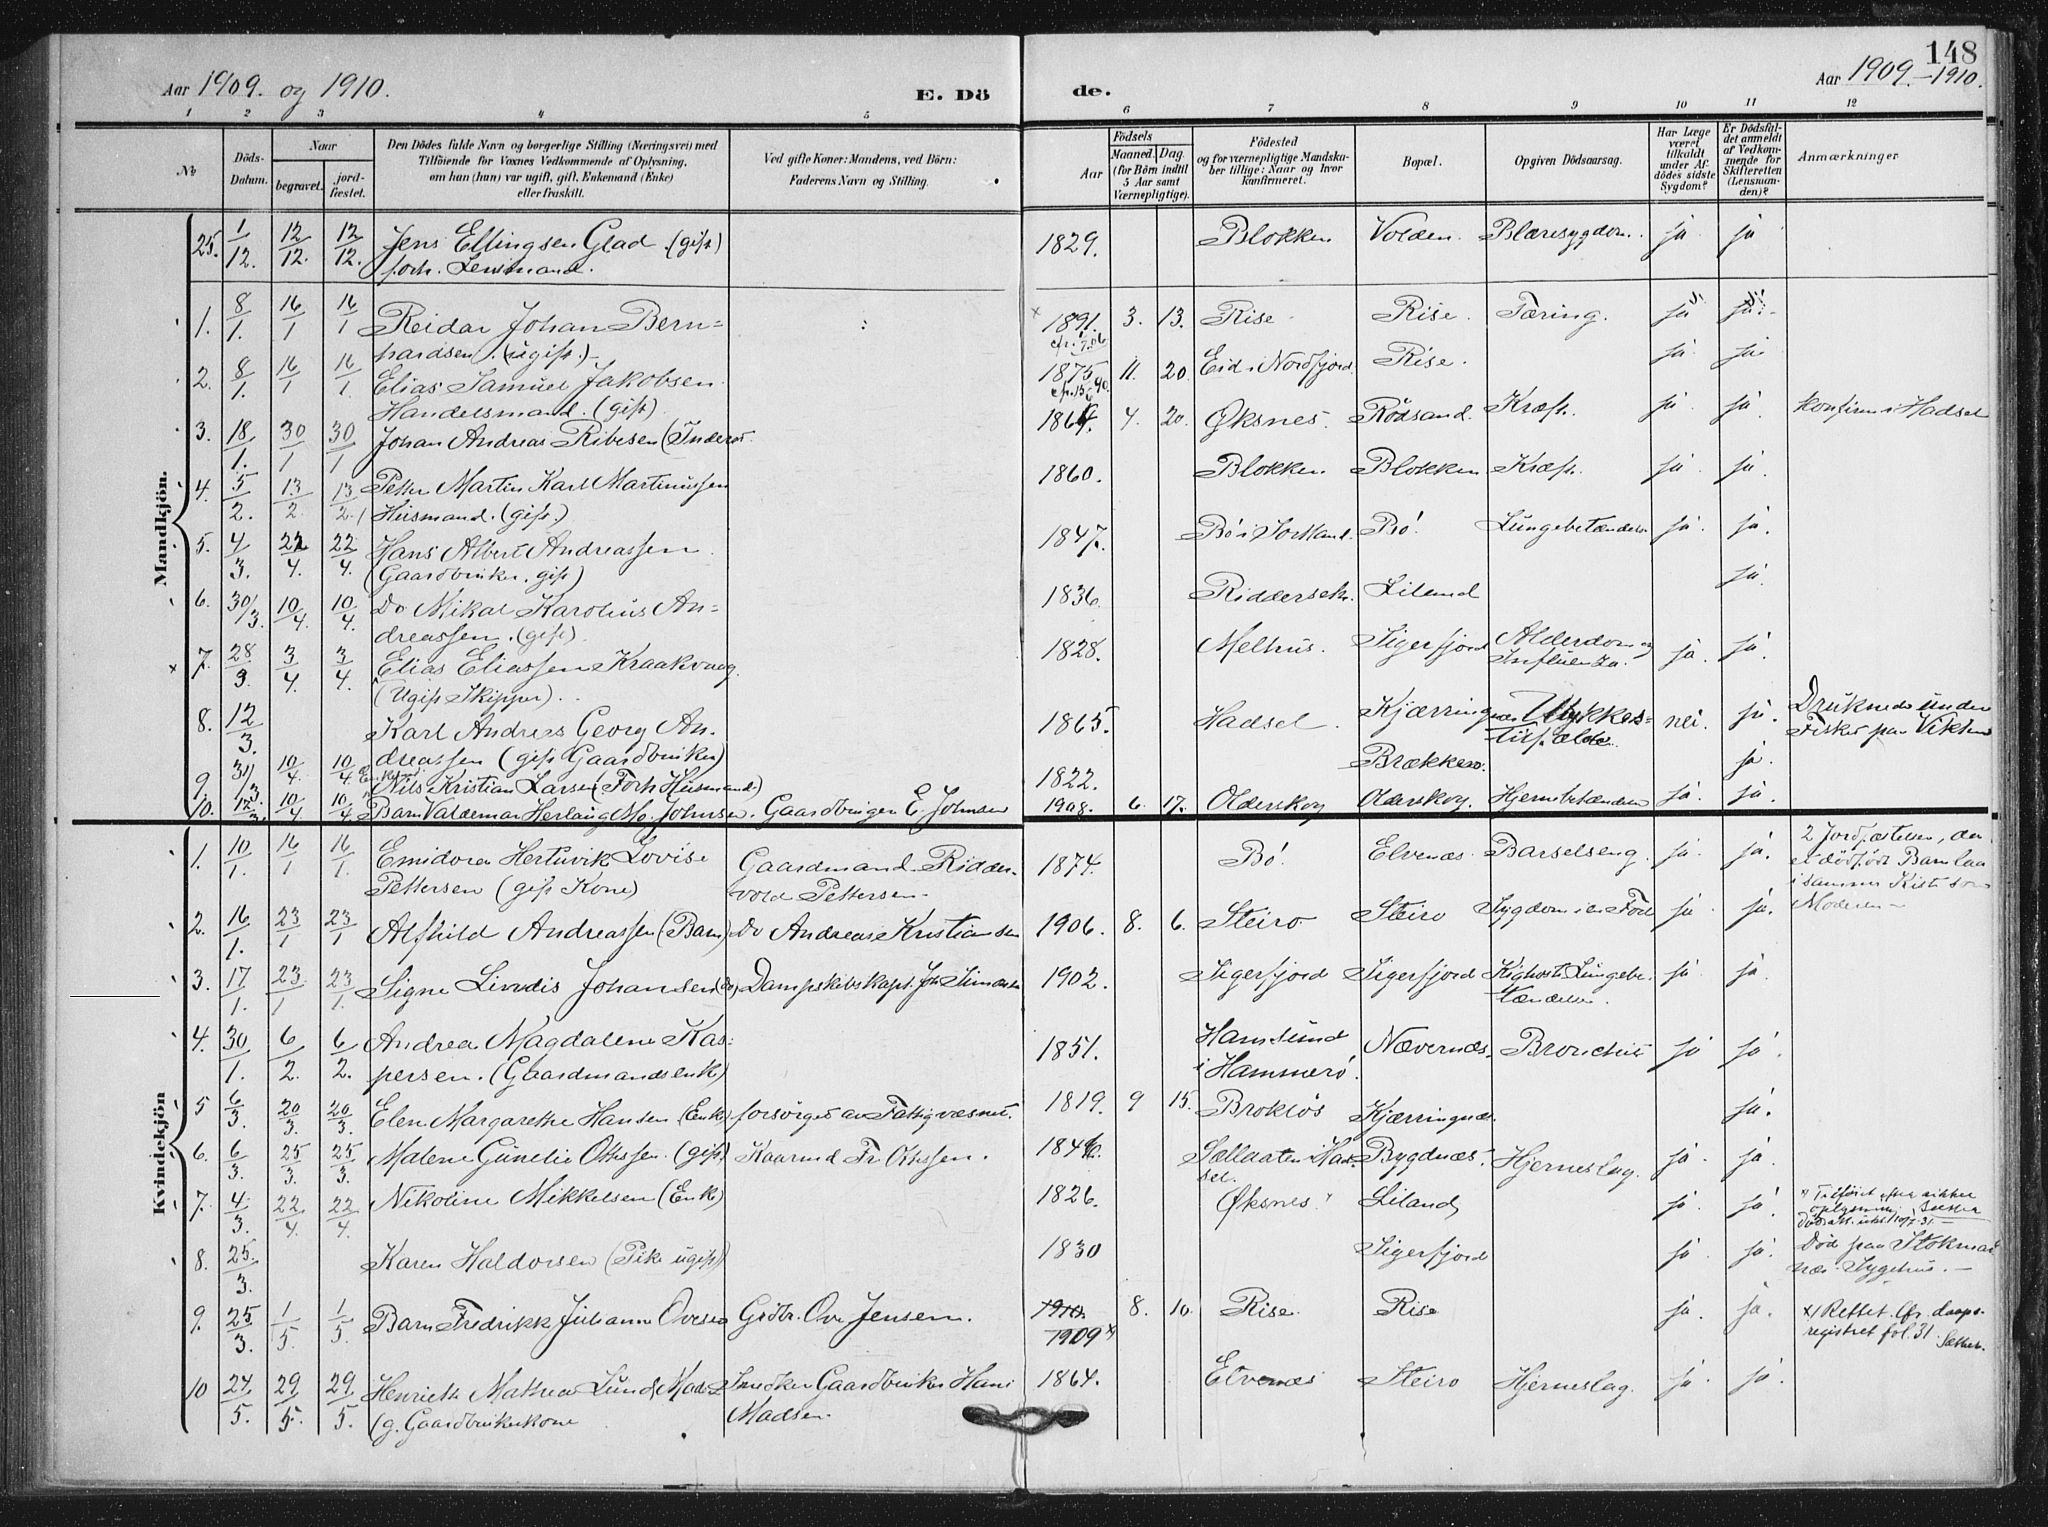 148
Aar 1909. og 1910.
E. Dö
de.
Aar 1909.-1910.
1 2 3 4 5 6 7 8 9 10 11 12
No
Döds-Datum.
Naar
begravet.
jord-fæstet.
Den Dödes fulde Navn og borgerlige Stilling (Næringsvei) med
Tilföiende for Voxnes Vedkommende af Oplysning,
om han (hun) var ugift, gift, Enkemand (Enke)
eller fraskilt.
Ved gifte Koner: Mandens, ved Börn:
Faderens Navn og Stilling.
Aar
Födsels
Maaned. Dag.
(for Börn indtil
5 Aar samt
Værnepligtige).
Födested
og for værnepligtige Mandska-
ber tillige: Naar og hvor
konfirmeret.
Bopæl.
Opgiven Dödsaarsag.
Har Læge
været
tilkaldt
under Af-
dödes sidste
Sygdom?
Er Dödsfal-
det anmeldt
af Vedkom-
mende for
Skifteretten
(Lensman-
den)?
Anmærkninger
Mandkjön.
25. 1/12. 12/12. 12/12. Jens Ellingsen Glad (gift) 1829. Blokken Volden. Blæresygdom. ja ja
forh. Lensmand.
1. 8/1. 16/1 16/1 Reidar Johan Bern= 1891. 3. 13. Rise Rise. Tæring. ja ja
hardsen. (ugift.)
2. 8/1. 16/1 16/1. Elias Samuel Jakobsen 1875 11. 20. Eid i Nordfjord Rise. ja ja
Handelsmand. (gift)
3. 18/1. 30/1 30/1 Johan Andreas Ribesen (Inderst 1864. 4. 20. Øksnes. Rödsand. Kræft. ja ja. konfirm i Hadsel
4. 5/2. 13/2. 13/2. Petter Martin Karl Martinussen 1860. Blokken. Blokken Kræft. ja ja.
Husmand. (gift.)
5. 4/3. 22/4. 22/4. Hans Albert Andreassen 1847. Bö i Sortland. Bö. Lungebetændelse ja ja.
(Gaardbruker. gift)
6. 30/3. 10/4. 10/4. Do Mikal Karolius An= 1836. Liland ja.
dreassen. (gift)
7. 28/3. 3/4. 3/4. Elias Eliassen Kraakvaag 1828. Melhus. Sigerfjord Alderdom og ja. ja.
(Ugift Skipper). Influenza.
8. 12/3. Karl Andreas Georg An. 1865. Hadsel. Kjærringnæs Ulykkes= nei. ja. Druknede under
dreassen (gift Gaardbruker) tilfælde. Fisket paa
9. 31/3. 10/4. 10/4 Enkem. Nils Kristian Larsen (Forh Husmand) 1822. Brækken. ja.
10. 10/4. 10/4 Barn Valdemar Herlaug M. Johnsen. Gaardbruger E. Johnsen 1908. 6. 17. Olderskog Olderskog. Hjernebetændelse ja. ja.
Kvindekjön
1. 10/1. 16/1 16/1. Emidora Hertuvik Lovise Gaardmand Ridder- 1874. Bö. Elvenæs. Barselseng. ja. ja. 2 Jordfæstelsen, da
Pettersen (gift Kone) vold Pettersen. et dödfödt Barn laa
i samme Kiste som
Moderen
2. 16/1. 23/1 23/1 Alfhild Andreassen (Barn) Do Andreas Kristiansen 1906. 8. 6. Steiro Steiro ja ja.
3. 17/1. 23/1 23/1. Signe Livdis Johansen (do) Dampskibskapt. Joh Simonsen 1902. Sigerfjord Sigerfjord Kighoste Lungebe- ja ja.
tændelse.
4. 30/1. 6/2. 6/2. Andrea Magdalene Kas= 1851. Hamsund Nævernæs. Bronchit ja ja.
persen. (Gaardmandsenk) i Hammerö.
5 6/3. 20/3. 20/3. Elen Margarethe Hansen (Enke) forsörget av Fattigvæsnet. 1819. 9 15. Broklös Kjærringnæs. ja.
6. 6/3. 25/3. 25/3. Malene Gunelie Ottesen. (gift) Kaarmd Fr. Ottesen. Bygdnæs. Hjerneslag. ja. ja.
7. 4/3. 22/4 22/4 Nikoline Mikkelsen (Enk) 1826. Øksnes Liland, ja. ja.
8. 25/3. Karen Haldorsen (Pike ugift) 1830 Sigerfjord ja. ja. Död paa Stokmar
næs Sygehus.
9. 25/3. 1/5. 1/5. Barn Fredrikk Julianne Ovesen Grdbr. Ove Jensen. 1910. 8. 10. Rise. Rise ja. ja. x) Rettet. Cfr. daaps-
1909 x) registret fol. 31.
10 24/5. 29/5. 29/5. Henriette Mathea Lund Madsen Snedker Gaardbruker Hans 1864. Elvenæs Steiro Hjerneslag. ja. ja.
(g. Gaardbrukerkone Madsen.